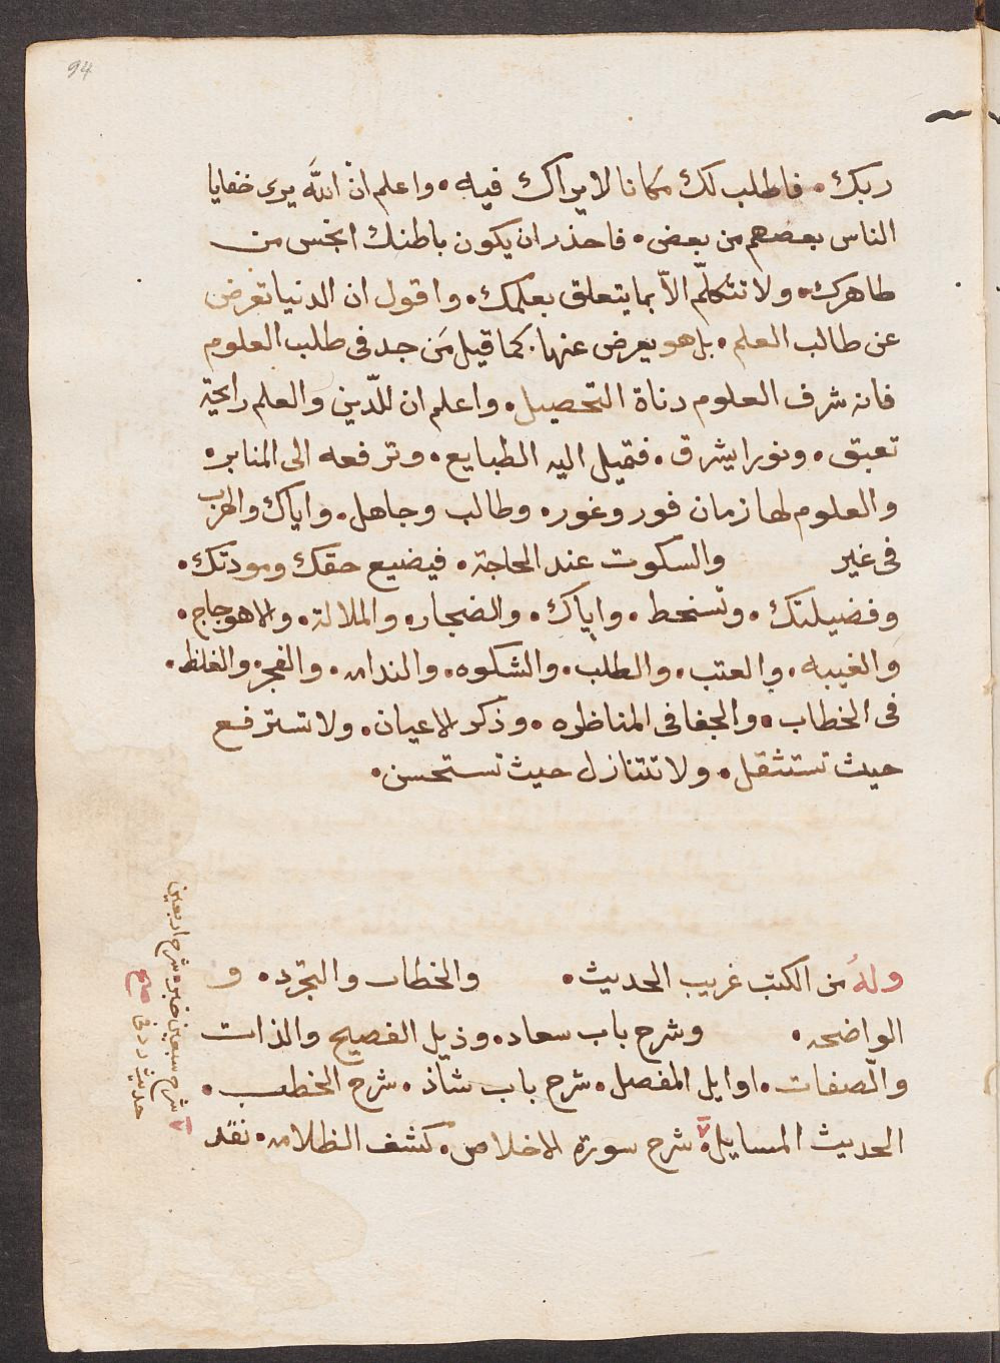 94
ربك . فاطلب لك مكانا لا يراك فيه . واعلم ان الله يرى خفايا
الناس بعضهم من بعض . فاحذر ان يكون باطنك انجس من
ظاهرك . ولا تتكلّم الاّ بما يتعلق بعلمك . واقول ان الدنيا تعرض
عن طالب العلم . بل هو يعرض عنها . كما قيل مَن جد فى طلب العلوم
فاته شرف العلوم دناة التحصيل . واعلم ان للّدين والعلم رايحة
تعبق . ونورا يشرق . فتميل اليه الطبايع . وترفعه الى المنابر .
والعلوم لها زمان فور وغور . وطالب وجاهل . واياك والهرب
فى غير والسكوت عند الحاجة . فيضيع حقك ومودتك .
وفضيلتك . وتسخط . واياك . والضجاره والملالة . والاهوجاج .
والغيبه . والعتب . والطلب . والشكوه . والندامه . والفجر . والغلظ .
فى الخطاب . والجفا فى المناظره . وذكر الاعيان . ولا تسترفع
حيث تستثقل . ولا تتنازل حيث تستحسن .
وله من الكتب غريب الحديث . والخطاب والتجرد . و
الواضحه . وشرح باب سعاد . وذيل الفصيح والذات
والصفات . اوايل المفصل . شرح باب شاذ . شرح الخطب .
الحديث المسايل . شرح سورة الاخلاص . كشف الظلامه . نقد
شرح سبعين خبره شرح اربعين
حديث
صح